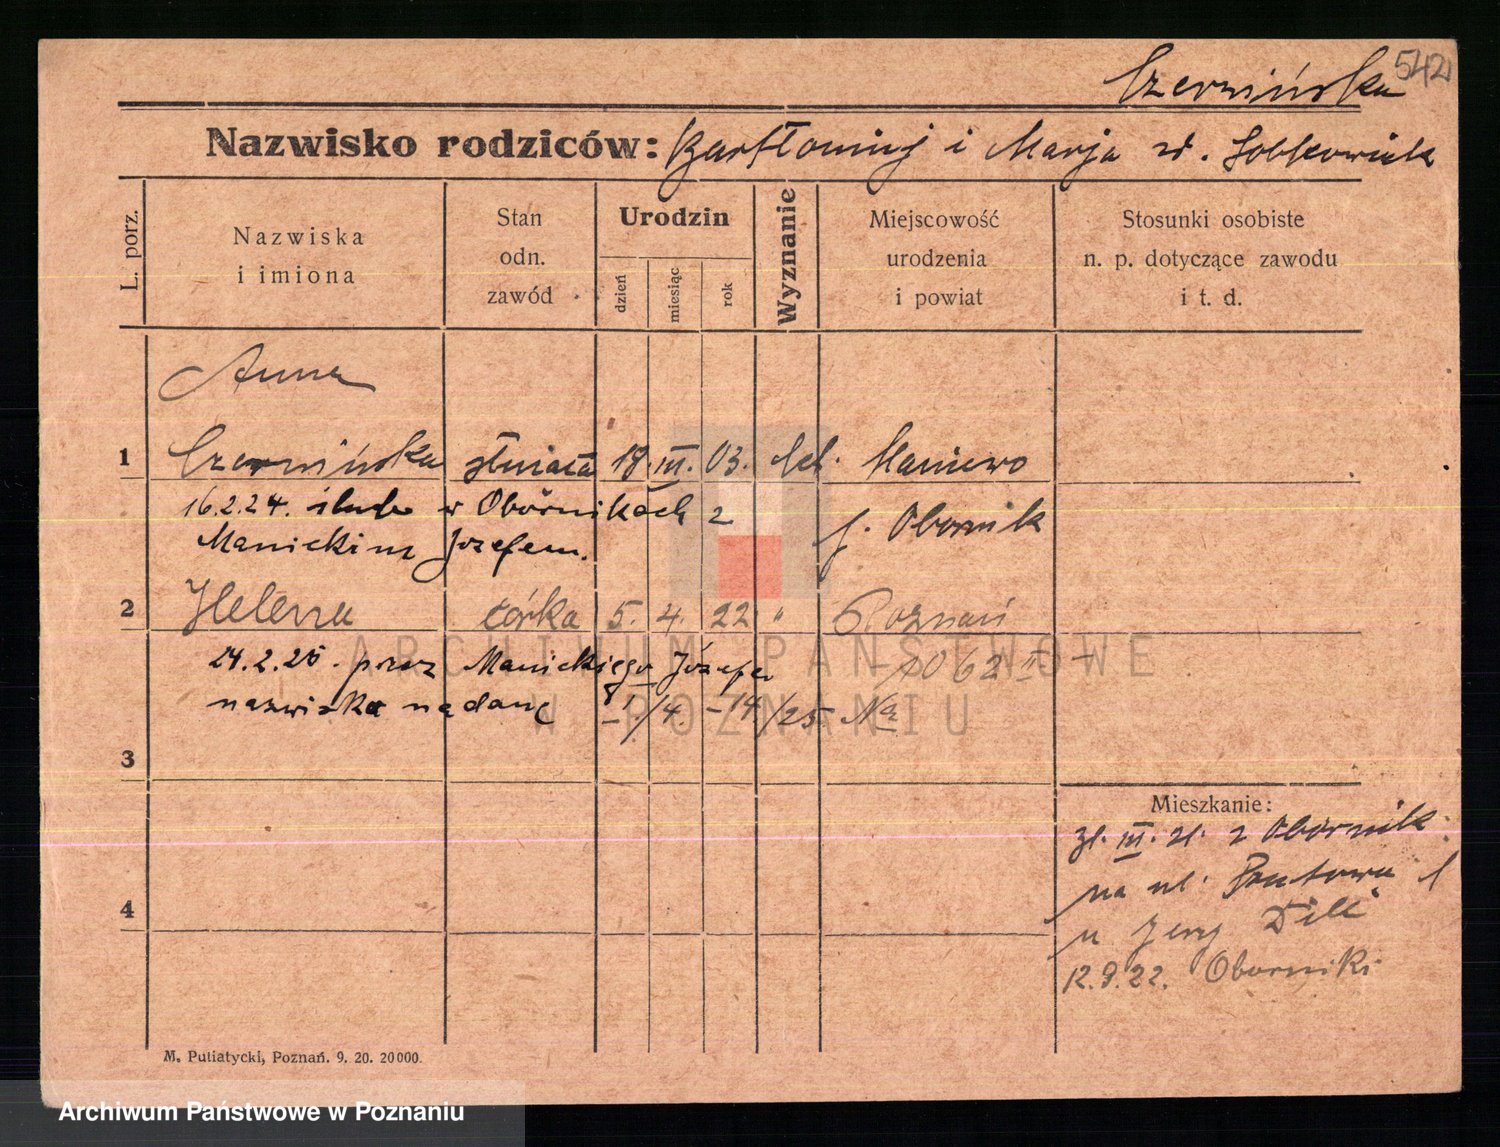 542
Czerwińska
Nazwisko rodziców: Bartłomiej i Marja zd. Sobkowiak
L. porz.
Nazwiska i imiona
Stan odn. zawód
Urodzin
dzień
miesiąc
rok
Wyznanie
Miejscowość urodzenia i powiat
Stosunki osobiste n. p. dotyczące zawodu i t. d.
Anna
1 Czerwińska służąca 18. III. 03. kat. Maniewo
16.2.24. ślub w Obornikach z p. Obornik
Manickim Józefem.
2 Helena córka 5. 4. 22 " Poznań
24.2.25. przez Manickiego Józefa
nazwisko nadane
3
4
Mieszkanie:
III. 21. z Obornik
na ul.
u Jerzy
12.9.22. Oborniki
M. Putiatycki, Poznań. 9. 20. 20000.
ARCHIWUM PAŃSTWOWE
W POZNANIU
Archiwum Państwowe w Poznaniu